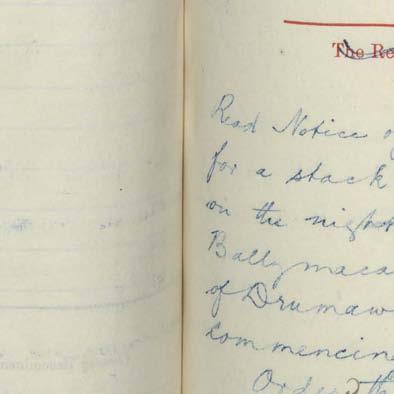 The Re
Read Notice o
for a stack
on the night
Ballymaca
of Drumaw
commencin
Order th